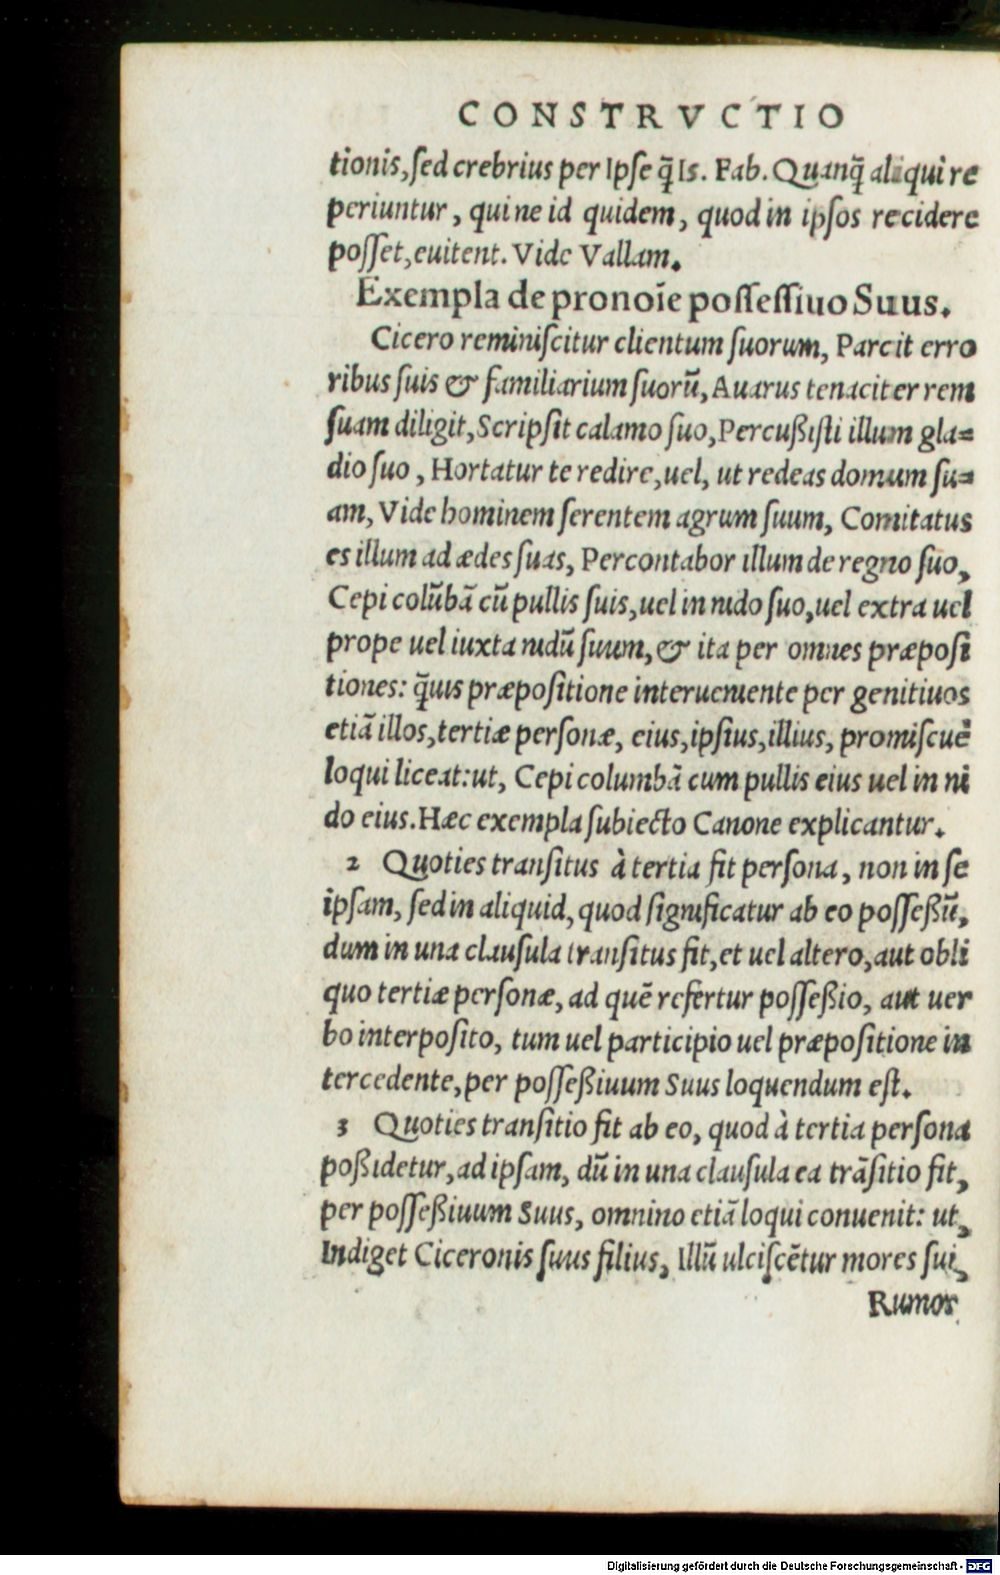 CONSTRVCTIO
tionis, ſed crebrius per Ipſe q̃ Is. Fab. Quanq̃ aliqui re
periuntur, qui ne id quidem, quod in ipſos recidere
poſſet, euitent. Vide Vallam.
Exempla de pronoīe poſſeſſiuo Suus.
Cicero reminiſcitur clientum ſuorum, Parcit erro
ribus ſuis & familiarium ſuorū, Auarus tenaciter rem
ſuam diligit, Scripſit calamo ſuo, Percußiſti illum gla=
dio ſuo, Hortatur te redire, uel, ut redeas domum ſu=
am, Vide hominem ſerentem agrum ſuum, Comitatus
es illum ad ædes ſuas, Percontabor illum de regno ſuo,
Cepi colūbā cū pullis ſuis, uel in nido ſuo, uel extra uel
prope uel iuxta nidū ſuum, & ita per omnes præpoſi
tiones: q̃uis præpoſitione interueniente per genitiuos
etiā illos, tertiæ perſonæ, eius, ipſius, illius, promiſcuè
loqui liceat: ut, Cepi columbā cum pullis eius uel in ni
do eius. Hæc exempla ſubiecto Canone explicantur.
2 Quoties tranſitus à tertia fit perſona, non in ſe
ipſam, ſed in aliquid, quod ſignificatur ab eo poſſeßū,
dum in una clauſula tranſitus fit, et uel altero, aut obli
quo tertiæ perſonæ, ad quē refertur poſſeßio, aut uer
bo interpoſito, tum uel participio uel præpoſitione in
tercedente, per poſſeßiuum Suus loquendum eſt.
3 Quoties tranſitio fit ab eo, quod à tertia perſona
poßidetur, ad ipſam, dū in una clauſula ea trāſitio fit,
per poſſeßiuum Suus, omnino etiā loqui conuenit: ut,
Indiget Ciceronis ſuus filius, Illū ulciſcētur mores ſui,
Rumor
Digitalisierung gefördert durch die Deutsche Forschungsgemeinschaft - DFG